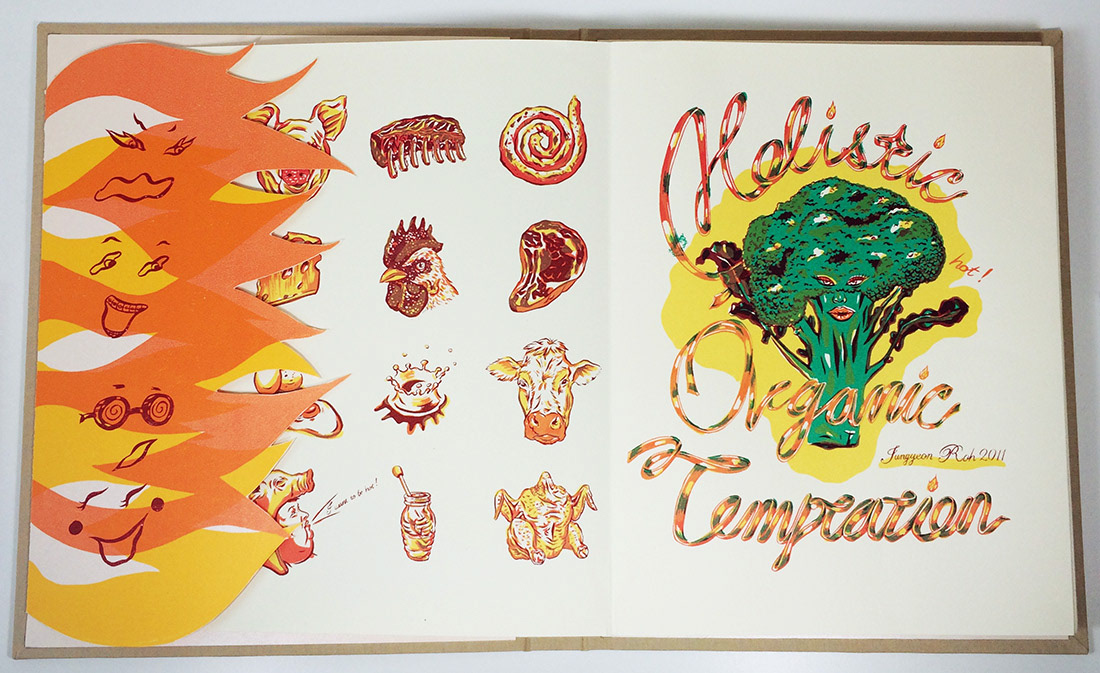 I want to be hot!
Holistic
hot!
Organic
Jungyeon Roh 2011
Temptation